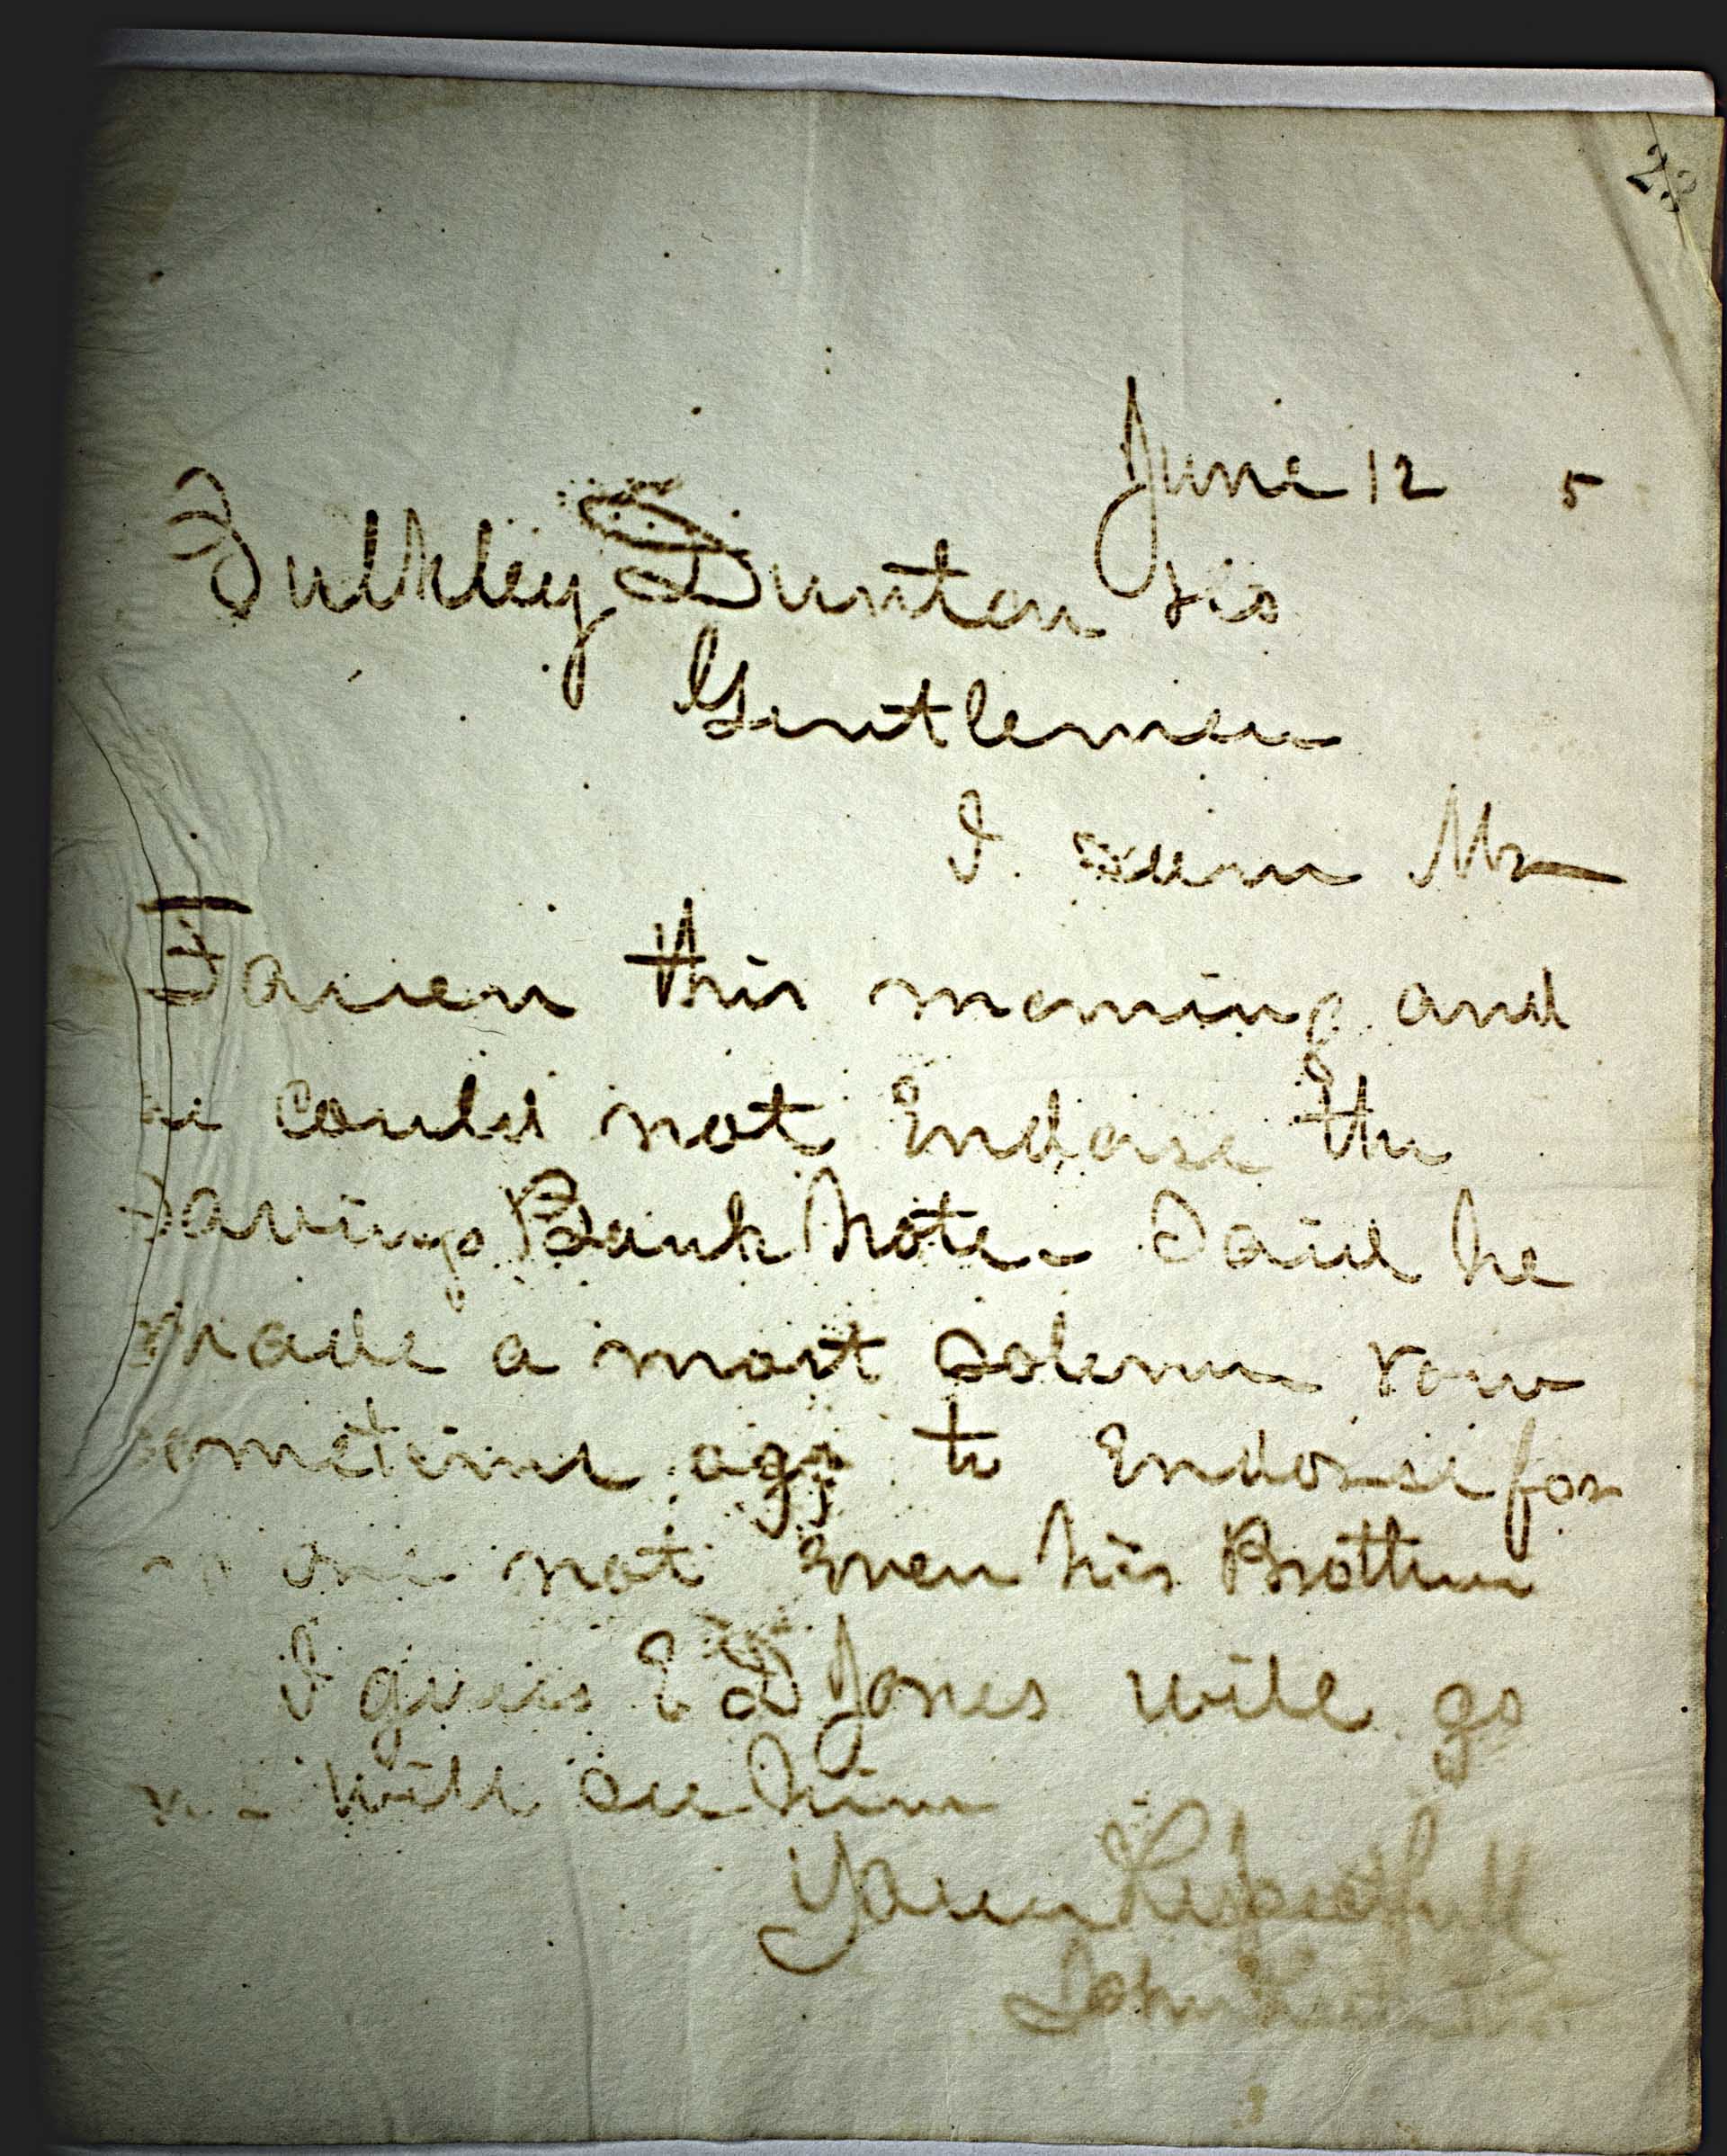 23
June 12 5
Bulkley Dunton
Gentlemen
I. seen Mr
this morning and
could not Endorse the
Savings Bank Note. Said he
made a most solemn vow
sometime ago to Endorse for
no one not Even his Brother
I guess E D Jones will go
will see him
Yours Respectfully
John